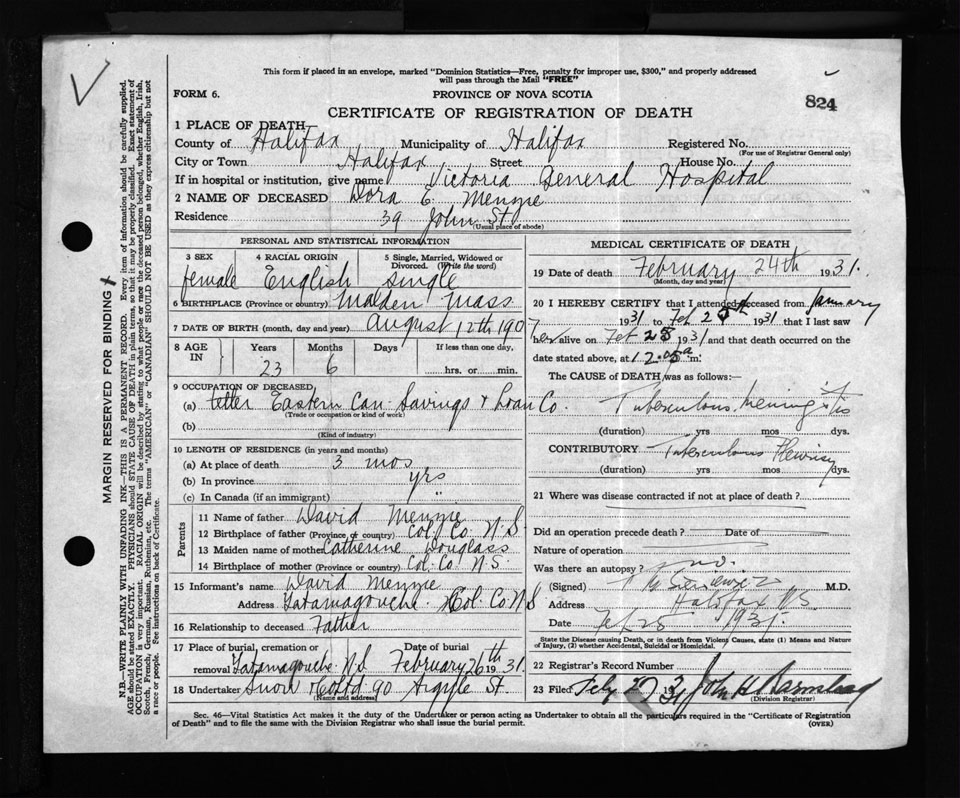 This form if placed in an envelope, marked "Dominion Statistics—Free, penalty for improper use, $300," and properly addressed
will pass through the Mail "FREE"
FORM 6.
PROVINCE OF NOVA SCOTIA
824
CERTIFICATE OF REGISTRATION OF DEATH
1 PLACE OF DEATH
County of Halifax Municipality of Halifax Registered No.
(For use of Registrar General only)
City or Town Halifax Street House No.
If in hospital or institution, give name Victoria General Hospital
2 NAME OF DECEASED Dora C. Menzie
Residence 39 John St
(Usual place of abode)
PERSONAL AND STATISTICAL INFORMATION
3 SEX 4 RACIAL ORIGIN 5 Single, Married, Widowed or
Divorced. (Write the word)
female English Single
6 BIRTHPLACE (Province or country) Malden Mass
7 DATE OF BIRTH (month, day and year) August 12th 1907
8 AGE IN Years Months Days If less than one day,
23 6 hrs. or min.
9 OCCUPATION OF DECEASED
(a) teller Eastern Can. Savings & Loan Co.
(Trade or occupation or kind of work)
(b)
(Kind of industry)
10 LENGTH OF RESIDENCE (in years and months)
(a) At place of death 3 mos
(b) In province yrs
(c) In Canada (if an immigrant) "
Parents
11 Name of father David Menzie
12 Birthplace of father (Province or country) Col. Co. N.S.
13 Maiden name of mother Catherine Douglass
14 Birthplace of mother (Province or country) Col. Co. N.S.
15 Informant's name David Menzie
Address Tatamagouche Col. Co N S
16 Relationship to deceased Father
17 Place of burial, cremation or Date of burial
removal Tatamagouche N.S February 26th 1931.
18 Undertaker Snow & Co Ltd 90 Argyle St.
(Name and address)
MEDICAL CERTIFICATE OF DEATH
19 Date of death February 24th 1931.
(Month, day and year)
20 I HEREBY CERTIFY that I attended deceased from January
1931 to Feb 25th 1931 that I last saw
her alive on Feb 25 1931 and that death occurred on the
date stated above, at 12.05 a m.
The CAUSE OF DEATH was as follows:
Tuberculous Meningitis
(duration) yrs mos dys.
CONTRIBUTORY Tuberculous Pleurisy
(duration) yrs. mos dys.
21 Where was disease contracted if not at place of death?
Did an operation precede death? Date of
Nature of operation
Was there an autopsy? no.
(Signed) M.D.
Address Halifax NS
Date Feb 25 1931.
State the Disease causing Death, or in death from Violent Causes, state (1) Means and Nature
of Injury, (2) whether Accidental, Suicidal or Homicidal.
22 Registrar's Record Number
23 Filed Feby 27 1931 John H Barnstead
(Division Registrar)
Sec. 46—Vital Statistics Act makes it the duty of the Undertaker or person acting as Undertaker to obtain all the particulars required in the "Certificate of Registration
of Death" and to file the same with the Division Registrar who shall issue the burial permit.
(OVER)
MARGIN RESERVED FOR BINDING
N.B.—WRITE PLAINLY WITH UNFADING INK—THIS IS A PERMANENT RECORD. Every item of information should be carefully supplied.
AGE should be stated EXACTLY. PHYSICIANS should STATE CAUSE OF DEATH in plain terms, so that it may be properly classified. Exact statement of
OCCUPATION is very important. RACIAL ORIGIN will be described by stating to what people or race the deceased person belonged, whether English, Irish,
Scotch, French, German, Russian, Ruthenian, etc. The terms "AMERICAN" or "CANADIAN" SHOULD NOT BE USED as they express citizenship but not
a race or people. See instructions on back of Certificate.